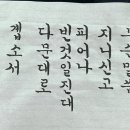 지니신고
피어나
빈것일진대
다문대로
겝소서